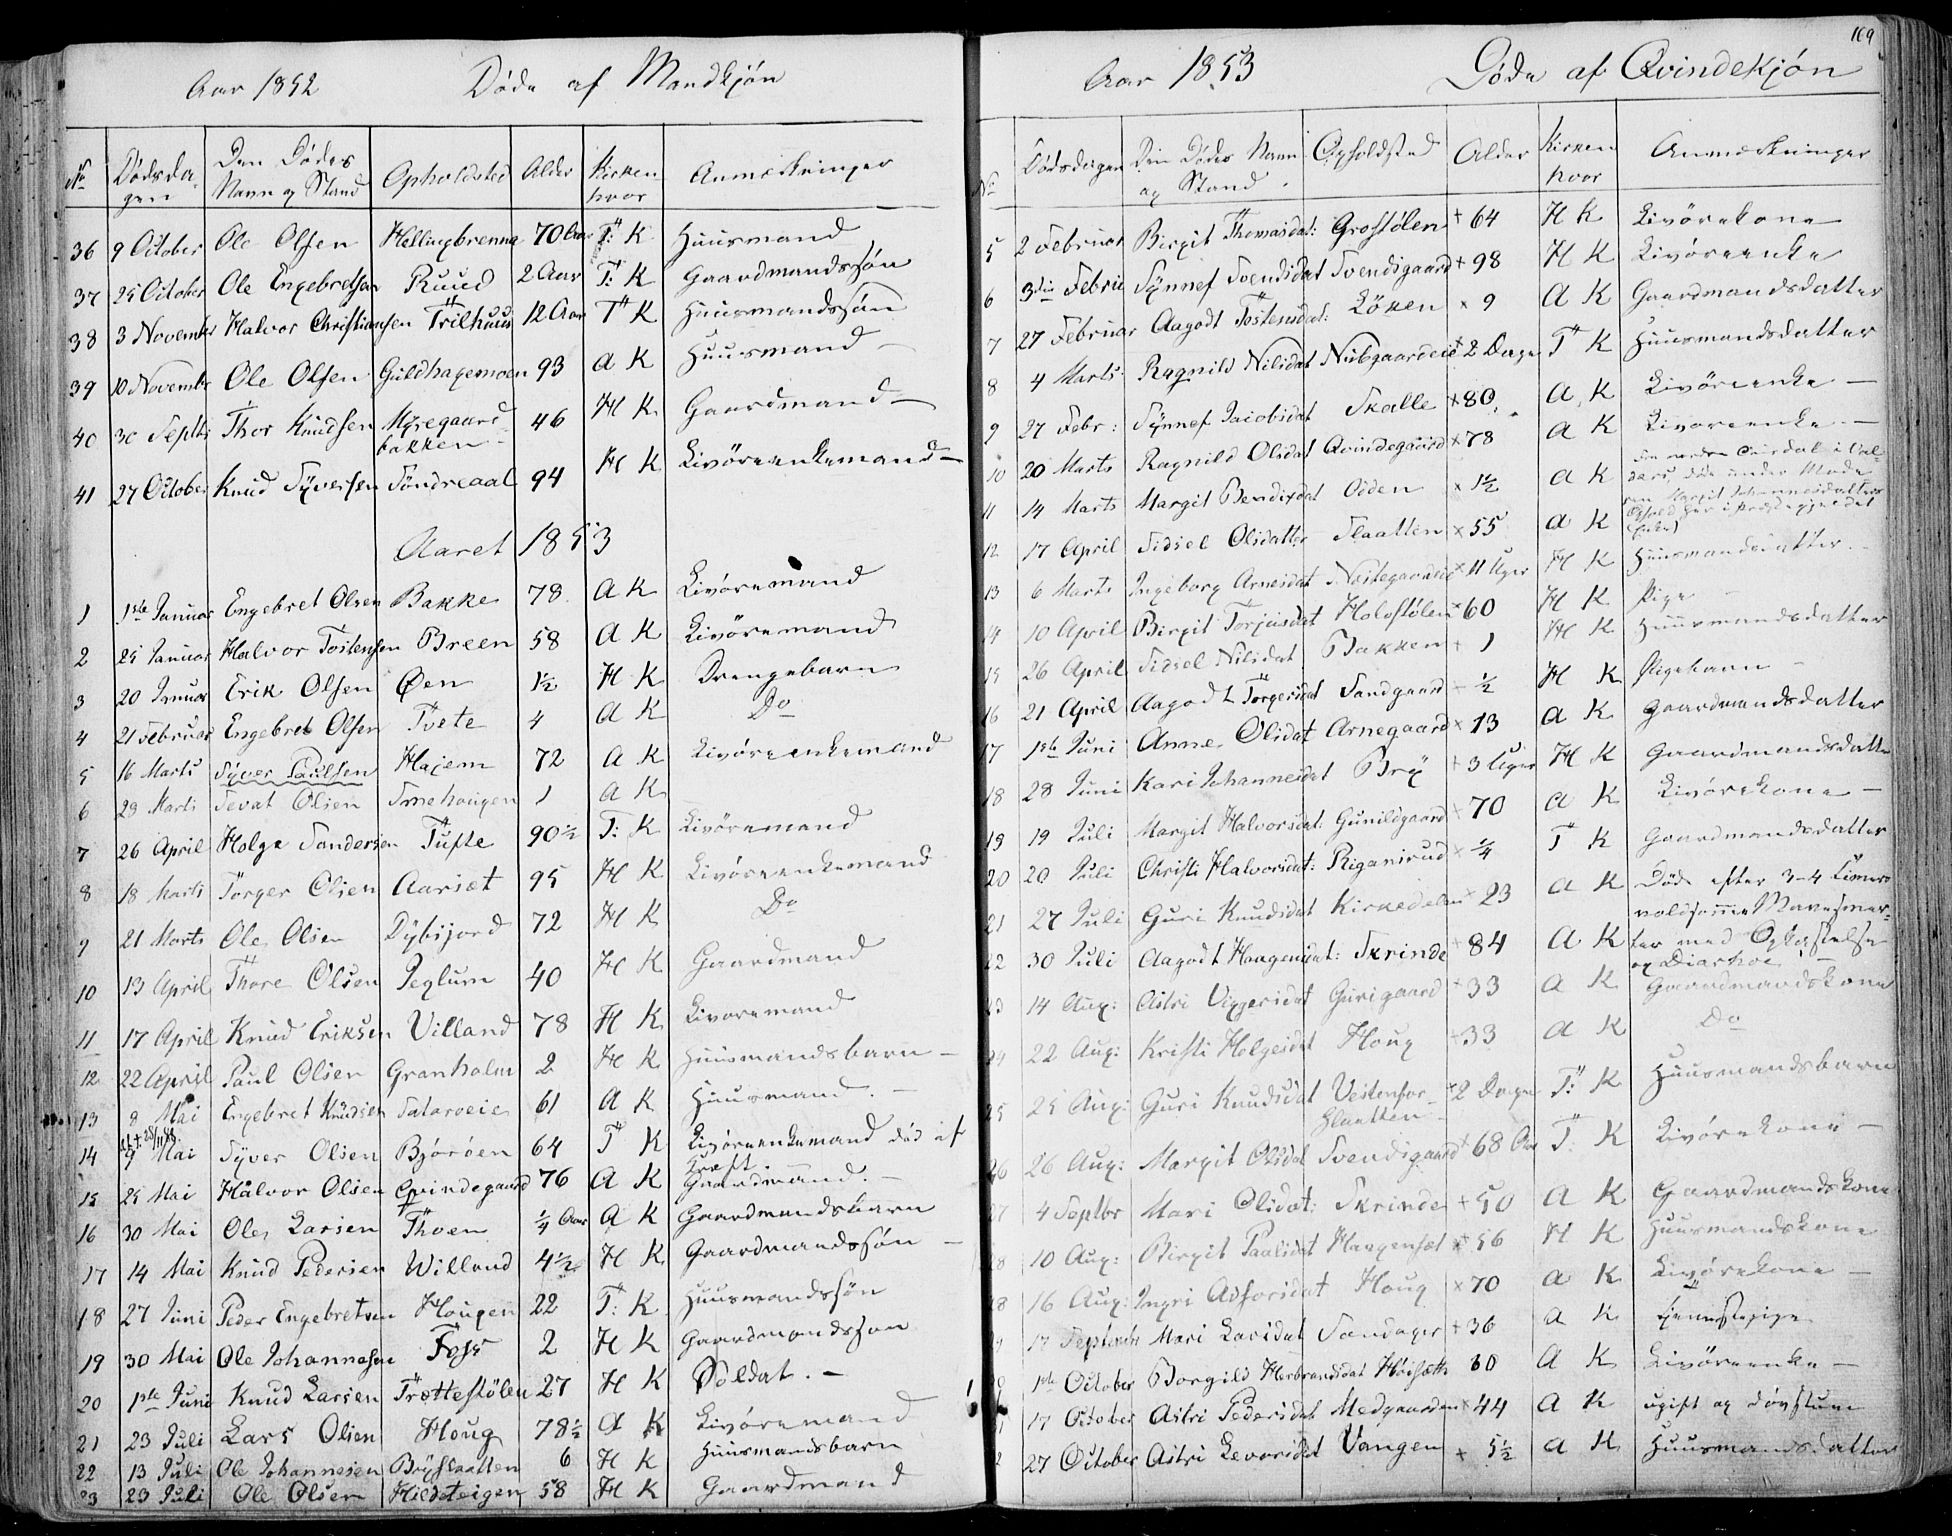 Aar 1852 Døde af Mandkjøn
No Dødsdagen Den Dødes Navn og Stand Opholdsted Alder Kirken hvor Anmærkninger
36 9 October Ole Olsen Hellingbrenna 70 Aar T: K Huusmand
37 25 October Ole Engebretsen Ruud 2 Aar T: K Gaardmandssøn
38 3 November Halvor Christiansen Trilhuus 12 Aar T K Huusmandssøn
39 10 Novembr Ole Olsen Guldhagemoen 93 A K Huusmand
40 30 Septbr Thor Knudsen Myregaardbakken 46 H K Gaardmand
41 27 October Knud Syversen Søndreaal 94 H K Livøreenkemand
Aaret 1853
1 1ste Januar Engebret Olsen Bakke 78 A K Livøremand
2 25 Januar Halvor Tostensen Breen 58 A K Livøremand
3 20 Januar Erik Olsen Øen 1½ H K Drengebarn
4 21 Februar Engebret Olsen Tvete 4 A K Do
5 16 Marts Syver Paulsen Hajem 72 A K Livøreenkemand
6 29 Marts Sevat Olsen Smehougen 1 A K
7 26 April Holge Sandersen Tufte 90½ T: K Livøremand
8 18 Marts Torger Olsen Aarset 95 H K Livøreenkemand
9 21 Marts Ole Olsen Dybsjord 72 H K Do
10 13 April Thore Olsen Peglum 40 H K Gaardmand
11 17 April Knud Eriksen Villand 78 H K Livøremand
12 22 April Paul Olsen Granholm 2 H K Huusmandsbarn
13 8 Mai Engebret Knudsen Sataroeie 61 A K Huusmand
14 9 Mai Syver Olsen Bjøröen 64 T K Livøreenkemand død af Kræft
15 25 Mai Halvor Olsen Qvindegaard 76 A K Gaardmand.
16 30 Mai Ole Larsen Thoen ¼ Aar A K Gaardmandsbarn
17 14 Mai Knud Pedersen Willand 4½ H K Gaardmandssøn
18 27 Juni Peder Engebretsen Hougen 22 T: K Huusmandssøn
19 30 Mai Ole Johannesen Foss 2 H K Gaardmandssøn
20 1ste Juni Knud Larsen Trøttestølen 27 H K Soldat.
21 23 Juli Lars Olsen Houg 78½ A K Livøremand
22 13 Juli Ole Johannesen Bryslaatten 6 H K Huusmandsbarn
23 23 Juli Ole Olsen Hildeteigen 58 H K Gaardmand
169
Aar 1853 Døde af Qvindekjøn
No Dødsdagen Den Dødes Navn og Stand Opholdsted Alder Kirken hvor Anmærkninger
5 2 Februar Birgit Thomasdat: Grostølen 64 H K Livørekone
6 3die Februar Synnef Svendsdat Svendsgaard 98 H K Livøreenke
7 27 Februar Aagodt Tostensdat: Löken 9 A K Gaardmandsdatter
8 4 Marts Ragnild Nilsdat Nubgaardeie 2 Dage T K Huusmandsdatter
9 27 Febr: Synnef Jacobsdat Skalle 80 A K Livøreenke
10 20 Marts Ragnild Olsdat Qvindegaard 78 A K Livøreenke
11 14 Marts Margit Bendixdat Odden 1½ A K
12 17 April Sidsel Olsdatter Slaatten 55 A K
13 6 Marts Ingeborg Arnesdat Nestegaardeie 11 Uger H K Huusmandsdatter
14 10 April Birgit Torjusdat Holostølen 60 H K Pige
15 26 April Sidsel Nilsdat Bakken 1 H K Huusmandsdatter
16 21 April Aagodt Torgersdat Sandgaard ½ H K Pigebarn
17 1ste Juni Anne Olsdat Arnegaard 13 A K Gaardmandsdatter
18 28 Juni Kari Johannesdat Bry 3 Uger H K Gaardmandsdatter
19 19 Juli Margit Halvorsdat: Gunildgaard 70 A K Livørekone
20 20 Juli Christi Halvorsdat: Riganirud ¼ T K Gaardmandsdatter
21 27 Juli Guri Knudsdat Kirkedelen 23 A K Død efter 3-4 Timers voldsomme Mavesmerter med Opkastelse og Diarhoe
22 30 Juli Aagodt Haugensdat: Skrinde 84 A K
23 14 Aug: Astri Viggersdat Gurigaard 33 A K Gaardmandskone
24 22 Aug: Kristi Holgesdat Houg 33 A K Do
25 25 Aug: Guri Knudsdat Vestenforslaatten 2 Dage T: K Huusmandsbarn
26 26 Aug: Margit Olsdat Svendsgaard 68 Aar T: K Livørekone
27 4 Septbr Mari Olsdat: Skrinde 50 A K Gaardmandskone
28 10 Aug: Birgit Paalsdat Haugenset 56 H K Huusmandskone
28 16 Aug: Ingri Asforsdat Houg 70 A K Livørekone
17 Septembr Mari Larsdat Sandager 36 A K Tjenestepige
1ste October Borgild Herbrandsdat Høvsæth 60 A K Livøreenke
17 October Astri Pedersdat Medgaarden 44 A K ugift og døvstum
27 October Astri Levorsdat Vangen 5½ A K Huusmandsdatter